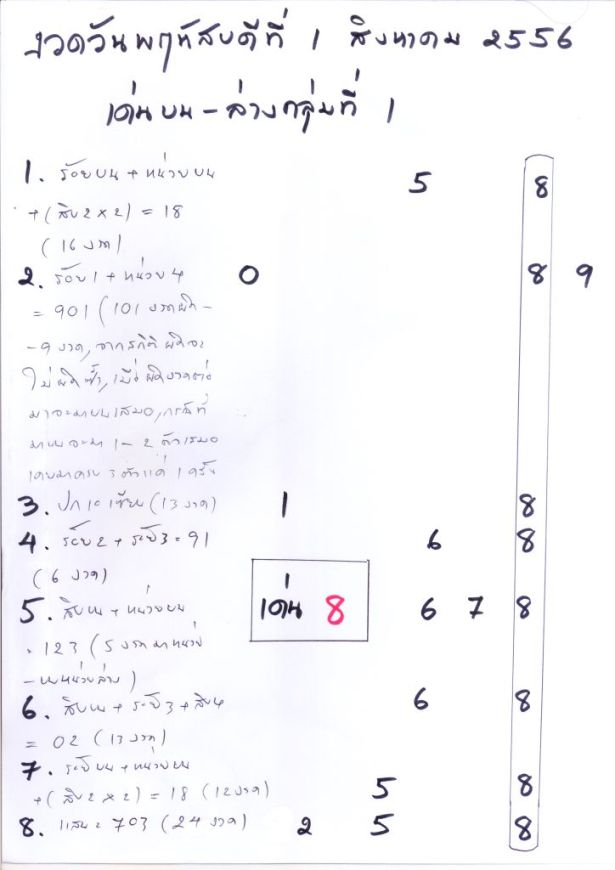 งวดวันพฤหัสบดีที่ 1 สิงหาคม 2556
เด่นบน - ล่างกลุ่มที่ 1
1. ร้อยบน + หน่วยบน 5 8
+ (สิบ2 x 2) = 18
(16 งวด)
2. ร้อย1 + หน่วย4 0 8 9
= 901 (101 งวดผิด -
- 9 งวด, จากสถิติผิดจะ
ไม่ผิดซ้ำ, เมื่อผิดงวดต่อ
มาจะมาบนเสมอ, กรณีที่
มาบนจะมา 1 - 2 ตัวเสมอ
เคยมาครบ 3 ตัวแค่ 1 ครั้ง
3. ปก เซียน (13 งวด) 1 8
4. ร้อย2 + ระบบ3 = 91 6 8
(6 งวด)
5. สิบบน + หน่วยบน เด่น 8 6 7 8
= 123 (5 งวด มาหน่วย
- บนหน่วยล่าง)
6. สิบบน + ระบบ3 + สิบ4 6 8
= 02 (13 งวด)
7. หน่วยบน
+ (สิบ2 x 2) = 18 (12งวด) 5 8
8. แสน = 703 (24 งวด) 2 5 8